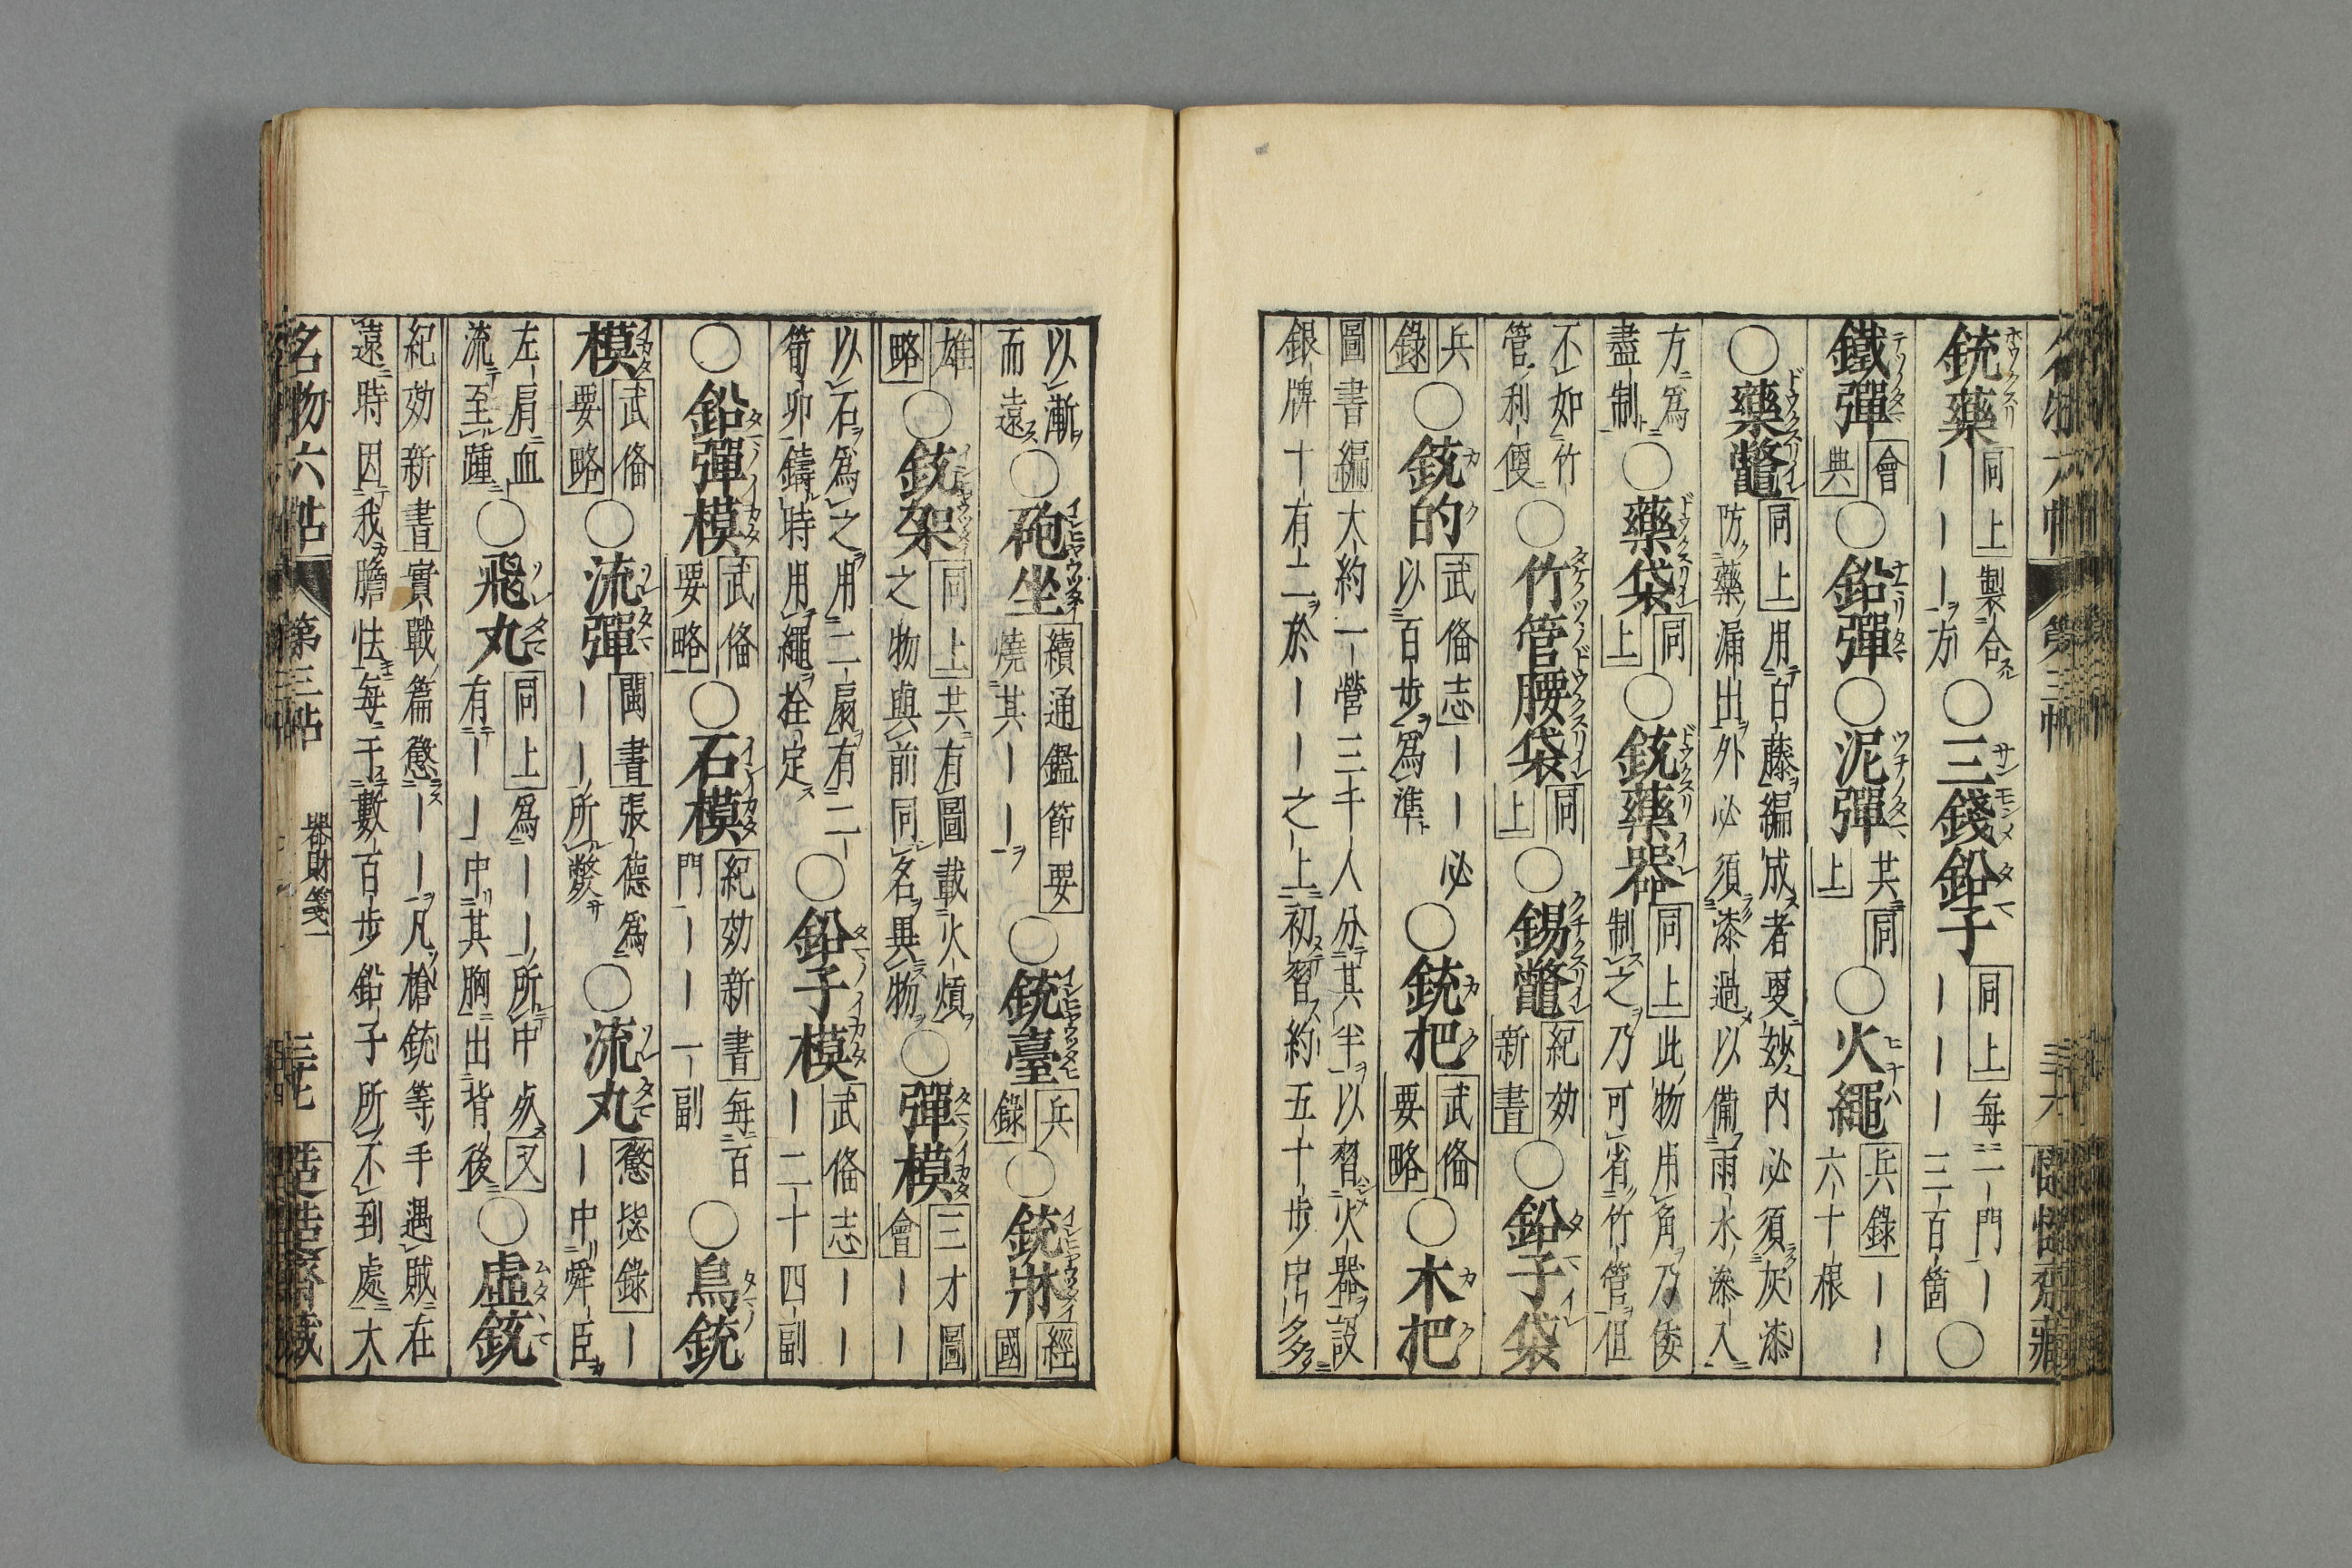 銃藥 同上 製合 ーーーー方 ○三錢鉛子 同上 每一門ー ーーー三百箇 ○
鐵彈 會典 ○鉛彈 ○泥彈 共同上 ○火繩 兵錄 ーー 六十根
○藥鼈 同上 用白藤編成者更妙內必須灰漆 防藥漏出外必須漆過以備雨水滲入
方爲盡制 ○藥袋 同上 ○銃藥器 同上 此物用角乃倭制之乃可省竹管但
不如竹管利便 ○竹管腰袋 同上 ○錫鼈 紀効新書 ○鉛子袋
兵錄 ○銃的 武俻志 ーー必以百步爲準 ○銃把 武俻要略 ○木把
圖書編 大約一營三千人分其半以習火器設
銀牌十有二於ーー之上初習約五十步中多
以漸而遠 ○砲坐 續通鑑節要 燒其ーー ○銃臺 兵錄 ○銃牀 經國
雄略 ○銃架 同上 共有圖載火煩之物與前同名異物 ○彈模 三才圖會 ーー
以石爲之用二扇有二筍卯鑄時用繩拴定 ○鉛子模 武俻志 ーーー二十四副
○鉛彈模 武俻要略 ○石模 紀効新書 每百門ーー一副 ○鳥銃
模 武俻要略 ○流彈 閩書 張德爲ーー所斃 ○流丸 懲毖錄 ーー中舜臣
左肩血流至踵 ○飛丸 同上 爲ーー所中死 又 有ーー中其胸出背後 ○虛銃
紀効新書 實戰篇 懲ーー凡槍銃等手遇賊在
遠時因我膽怯每于數百步鉛子所不到處大
名物六帖 第三帖 器財箋一 三七